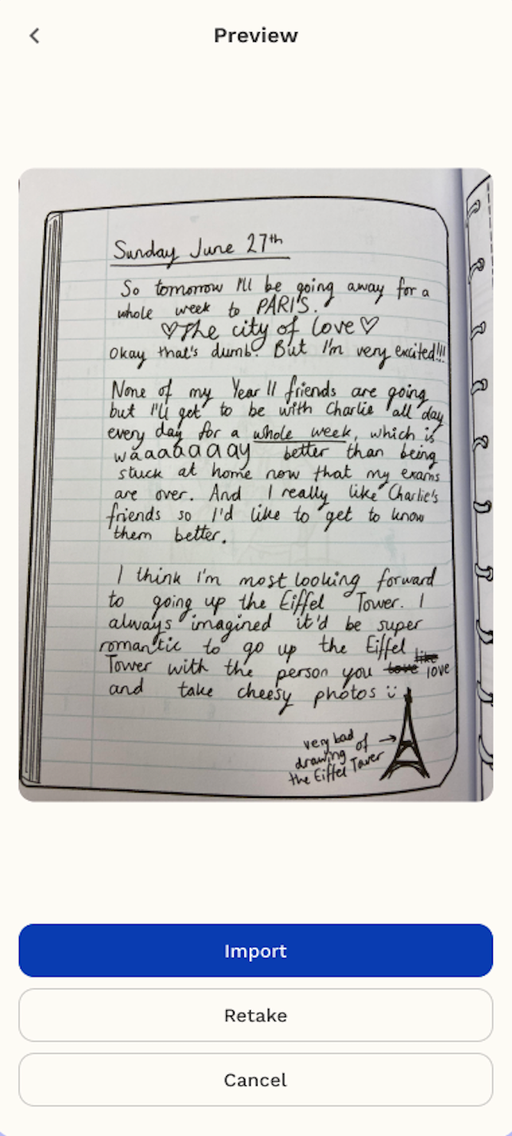 Preview
Sunday June 27th
So tomorrow I'll be going away for a
whole week to PARIS.
♡The city of love♡
Okay that's dumb. But I'm very excited!!!
None of my Year 11 friends are going
but I'll get to be with Charlie all day
every day for a whole week, which is
waaaaaaay better than being
stuck at home now that my exams
are over. And I really like Charlie's
friends so I'd like to get to know
them better.
I think I'm most looking forward
to going up the Eiffel Tower. I
always imagined it'd be super
romantic to go up the Eiffel
like
Tower with the person you love love
and take cheesy photos
very bad
drawing of
the Eiffel Tower
Import
Retake
Cancel